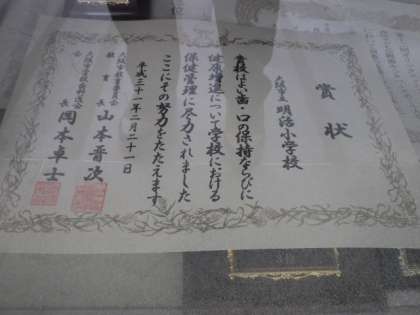 賞状
大阪市立 明治小学校
貴校はよい歯・口の保持ならびに
健康増進について学校における
保健管理に尽力されました
ここにその努力をたたえます
平成三十一年二月二十一日
大阪市教育委員会
教育長 山本晋次
会長 岡本卓士